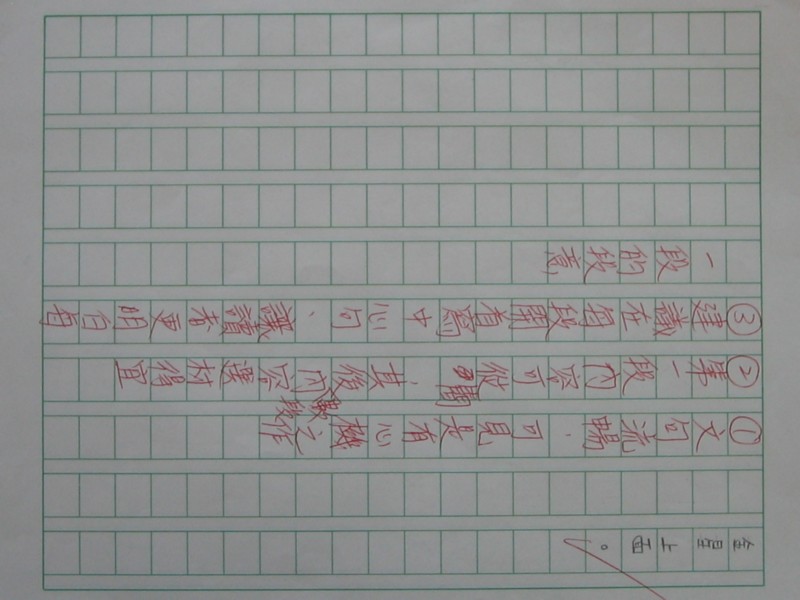 上面。
①文句流暢,可見是有心機之作
②第一段內容可從刪 其後內容選材得宜
③建議在每段開首寫中心句、讓讀者更明白每
一段的段意